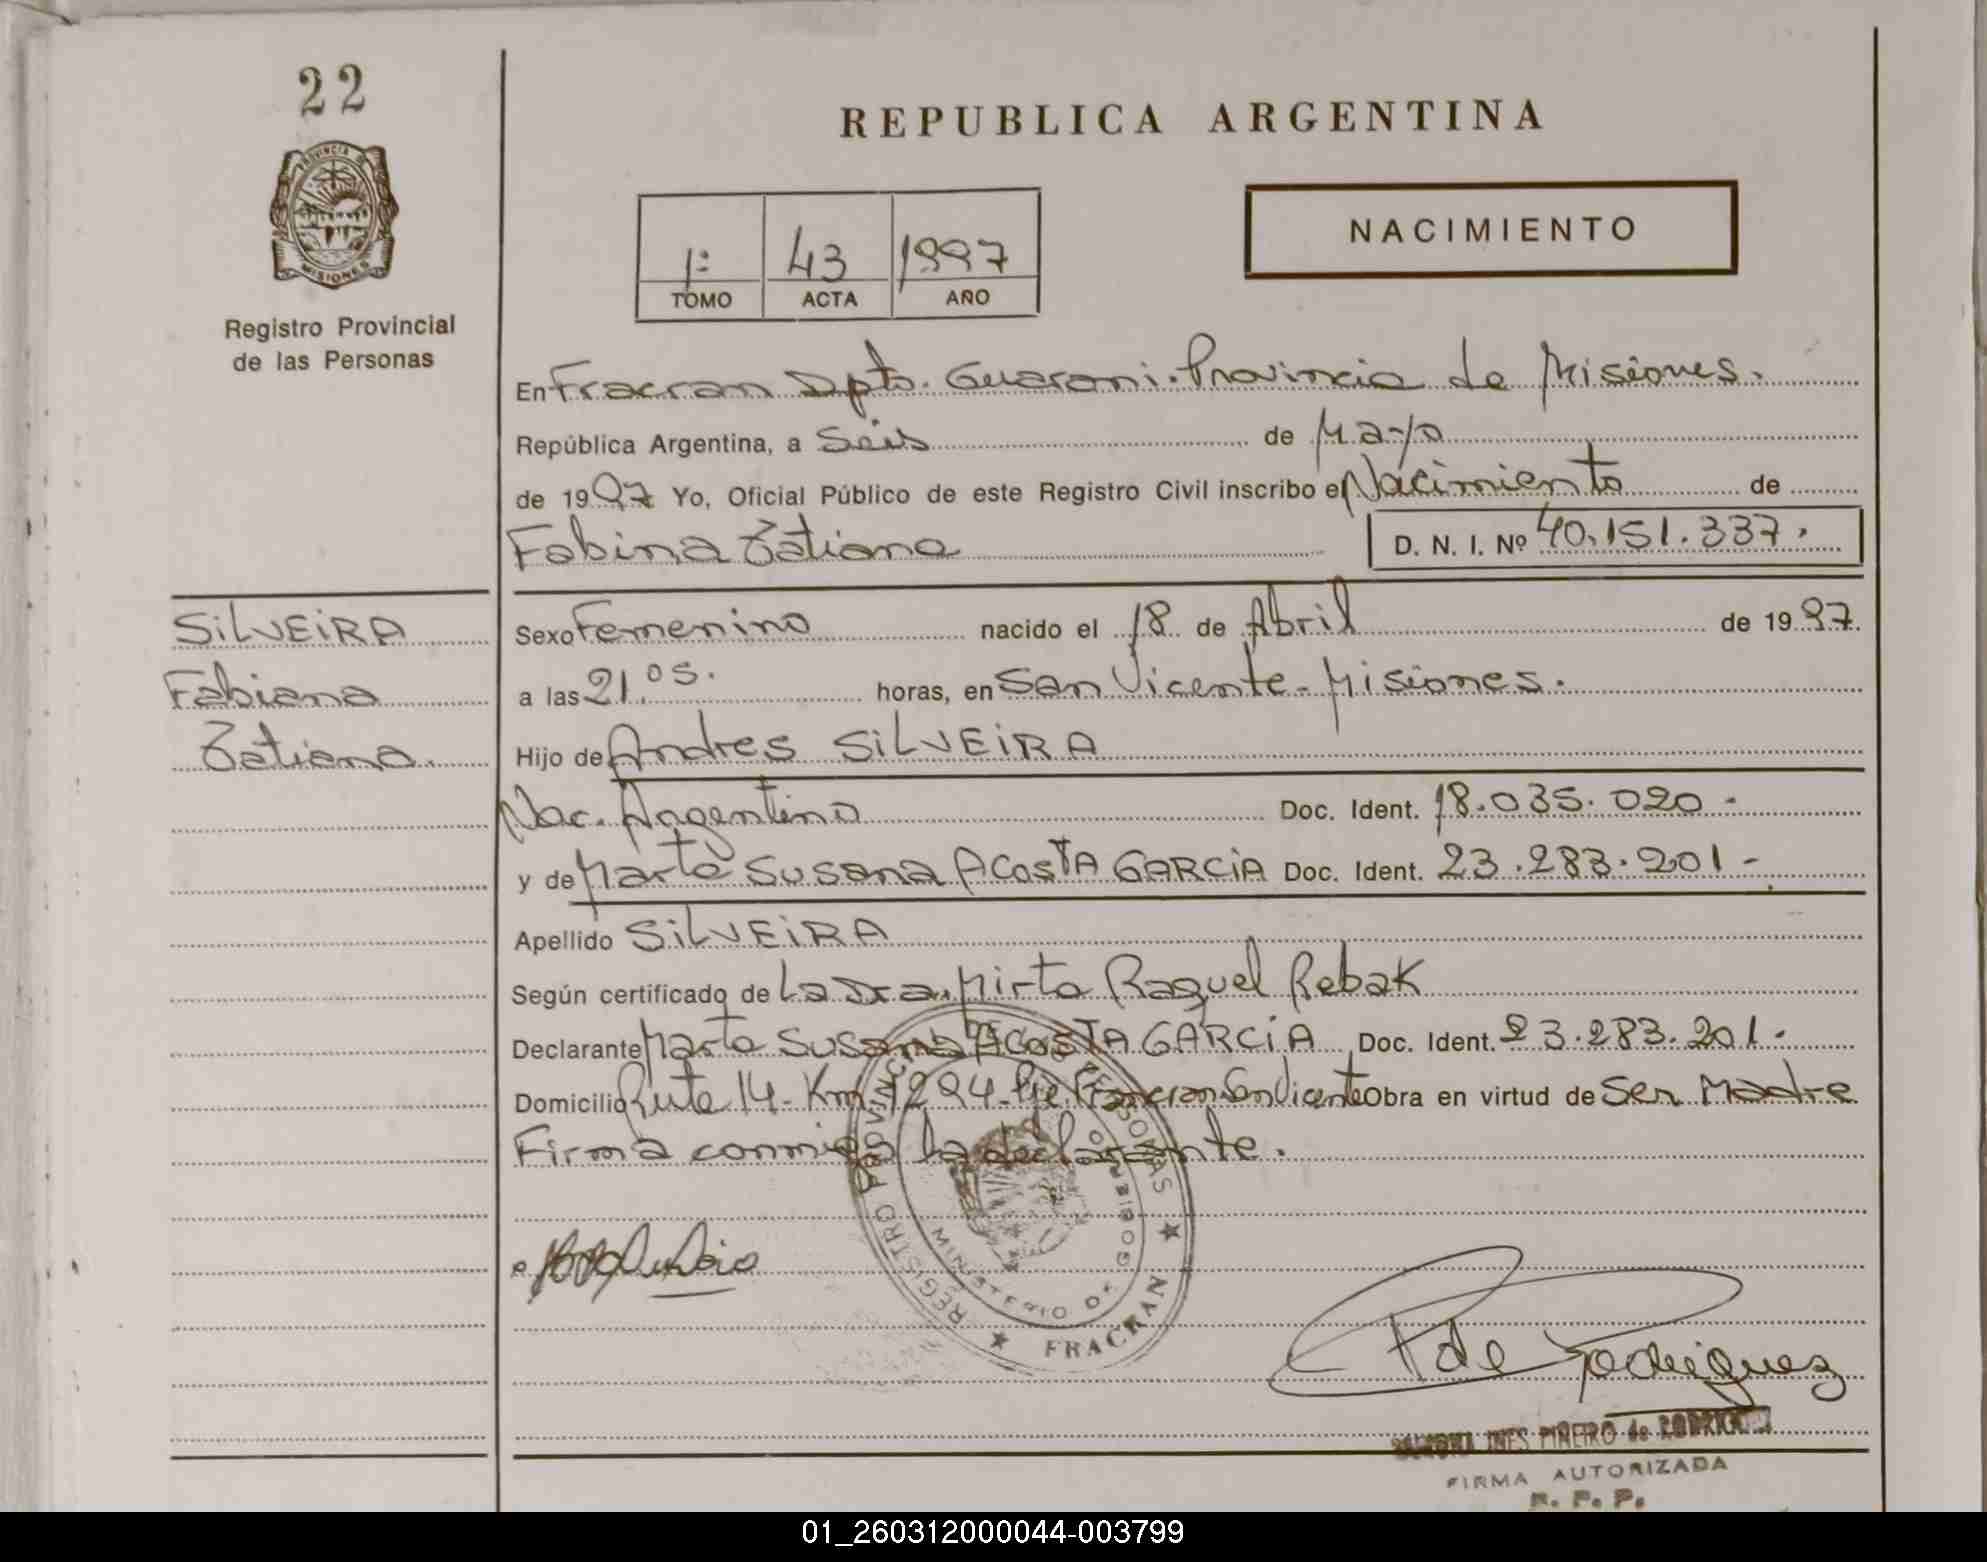 22
PROVINCIA DE
MISIONES
Registro Provincial
de las Personas
REPUBLICA ARGENTINA
NACIMIENTO
1º 43 1997
TOMO ACTA AÑO
En Fracran Dpto. Guarani. Provincia de Misiones.
República Argentina, a Seis de Mayo
de 1997 Yo, Oficial Público de este Registro Civil inscribo el Nacimiento de
Fabina Tatiana D. N. I. Nº 40.151.337.
SILVEIRA
Fabiana
Tatiana.
Sexo Femenino nacido el 18 de Abril de 1997.
a las 21.05. horas, en San Vicente - Misiones.
Hijo de Andres SILVEIRA
Nac. Argentino Doc. Ident. 18.035.020.-
y de Marta Susana ACOSTA GARCIA Doc. Ident. 23.283.201-
Apellido SILVEIRA
Según certificado de La Dra. Mirta Raquel Rebak
Declarante Marta Susana ACOSTA GARCIA Doc. Ident. 23.283.201.
Domicilio Ruta 14 - Km 1294 - Pje. Fracran San Vicente Obra en virtud de Ser Madre
Firma conmigo la declarante.
REGISTRO PROVINCIAL DE LAS PERSONAS
MINISTERIO DE GOBIERNO
FRACRAN
P de Rodriguez
INES PIÑEIRO de RODRIGUEZ
FIRMA AUTORIZADA
R. P. P.
01_260312000044-003799